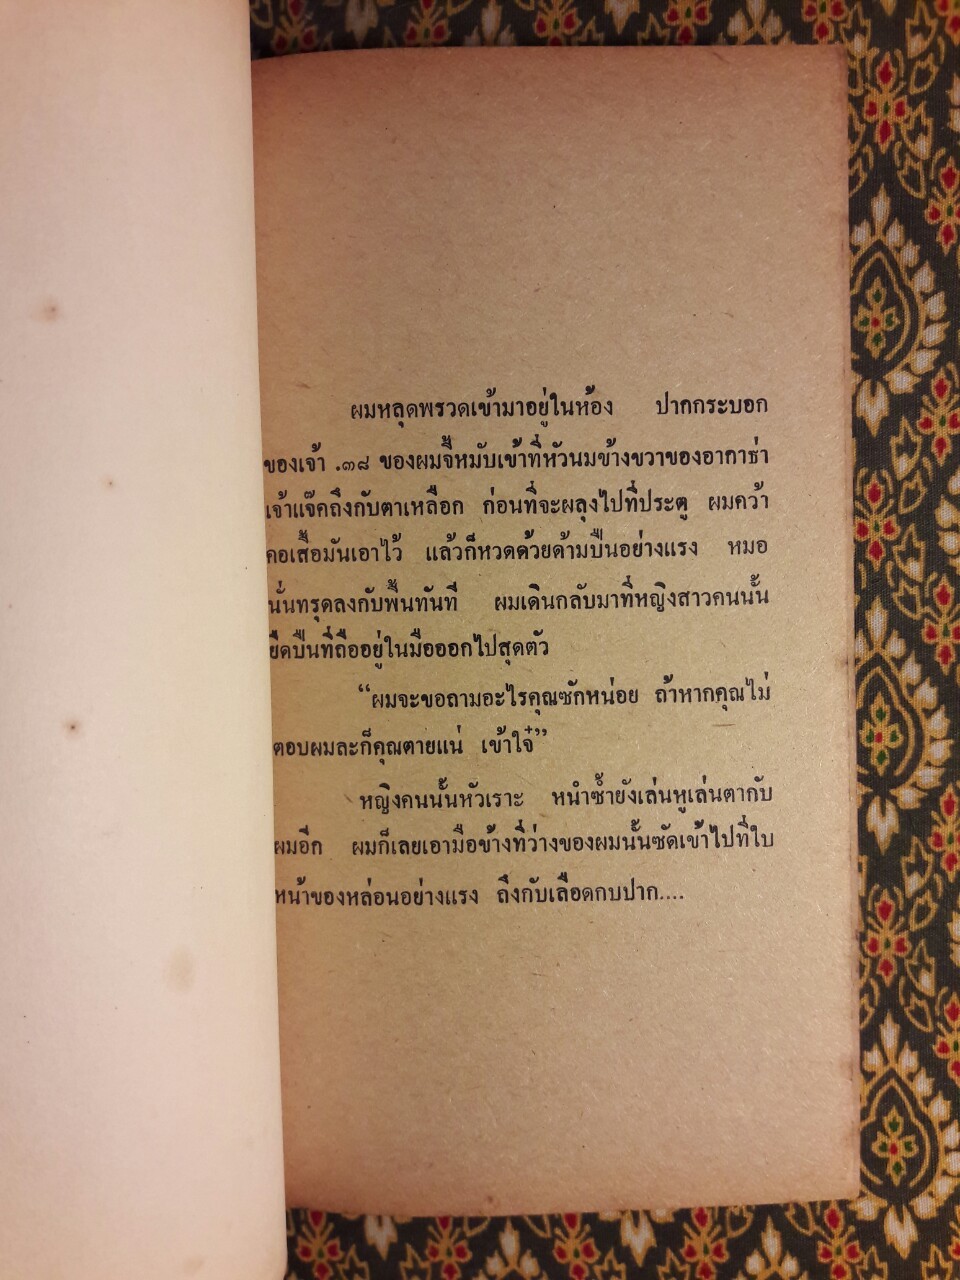 ผมหลุดพรวดเข้ามาอยู่ในห้อง ปากกระบอก
ของเจ้า .๓๘ ของผมจี้หมับเข้าที่หัวนมข้างขวาของอากาธ่า
เจ้าแจ๊คถึงกับตาเหลือก ก่อนที่จะผลุงไปที่ประตู ผมคว้า
คอเสื้อมันเอาไว้ แล้วก็หวดด้วยด้ามปืนอย่างแรง หมอ
นั่นทรุดลงกับพื้นทันที ผมเดินกลับมาที่หญิงสาวคนนั้น
ยืดปืนที่ถืออยู่ในมือออกไปสุดตัว
“ผมจะขอถามอะไรคุณซักหน่อย ถ้าหากคุณไม่
ตอบผมละก็คุณตายแน่ เข้าใจ๋”
หญิงคนนั้นหัวเราะ หนำซ้ำยังเล่นหูเล่นตากับ
ผมอีก ผมก็เลยเอามือข้างที่ว่างของผมนั้นซัดเข้าไปที่ใบ
หน้าของหล่อนอย่างแรง ถึงกับเลือดกบปาก....